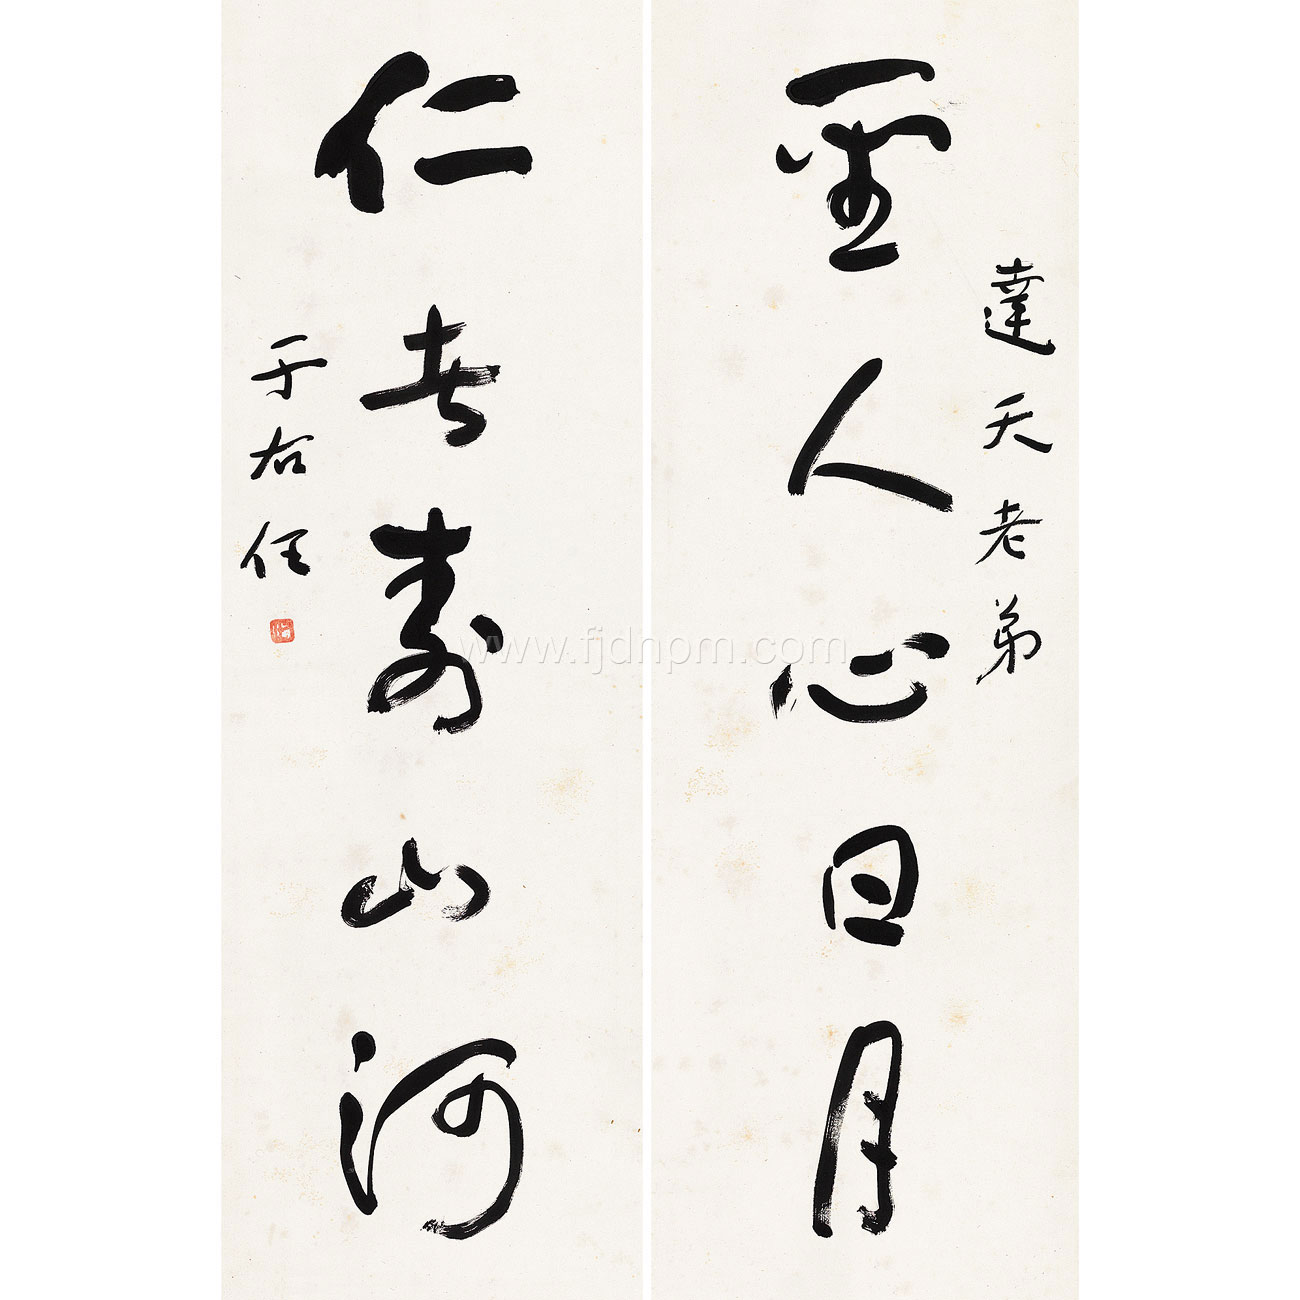 達天老弟
聖人心日月
仁者壽山河
于右任
www.fjdhpm.com